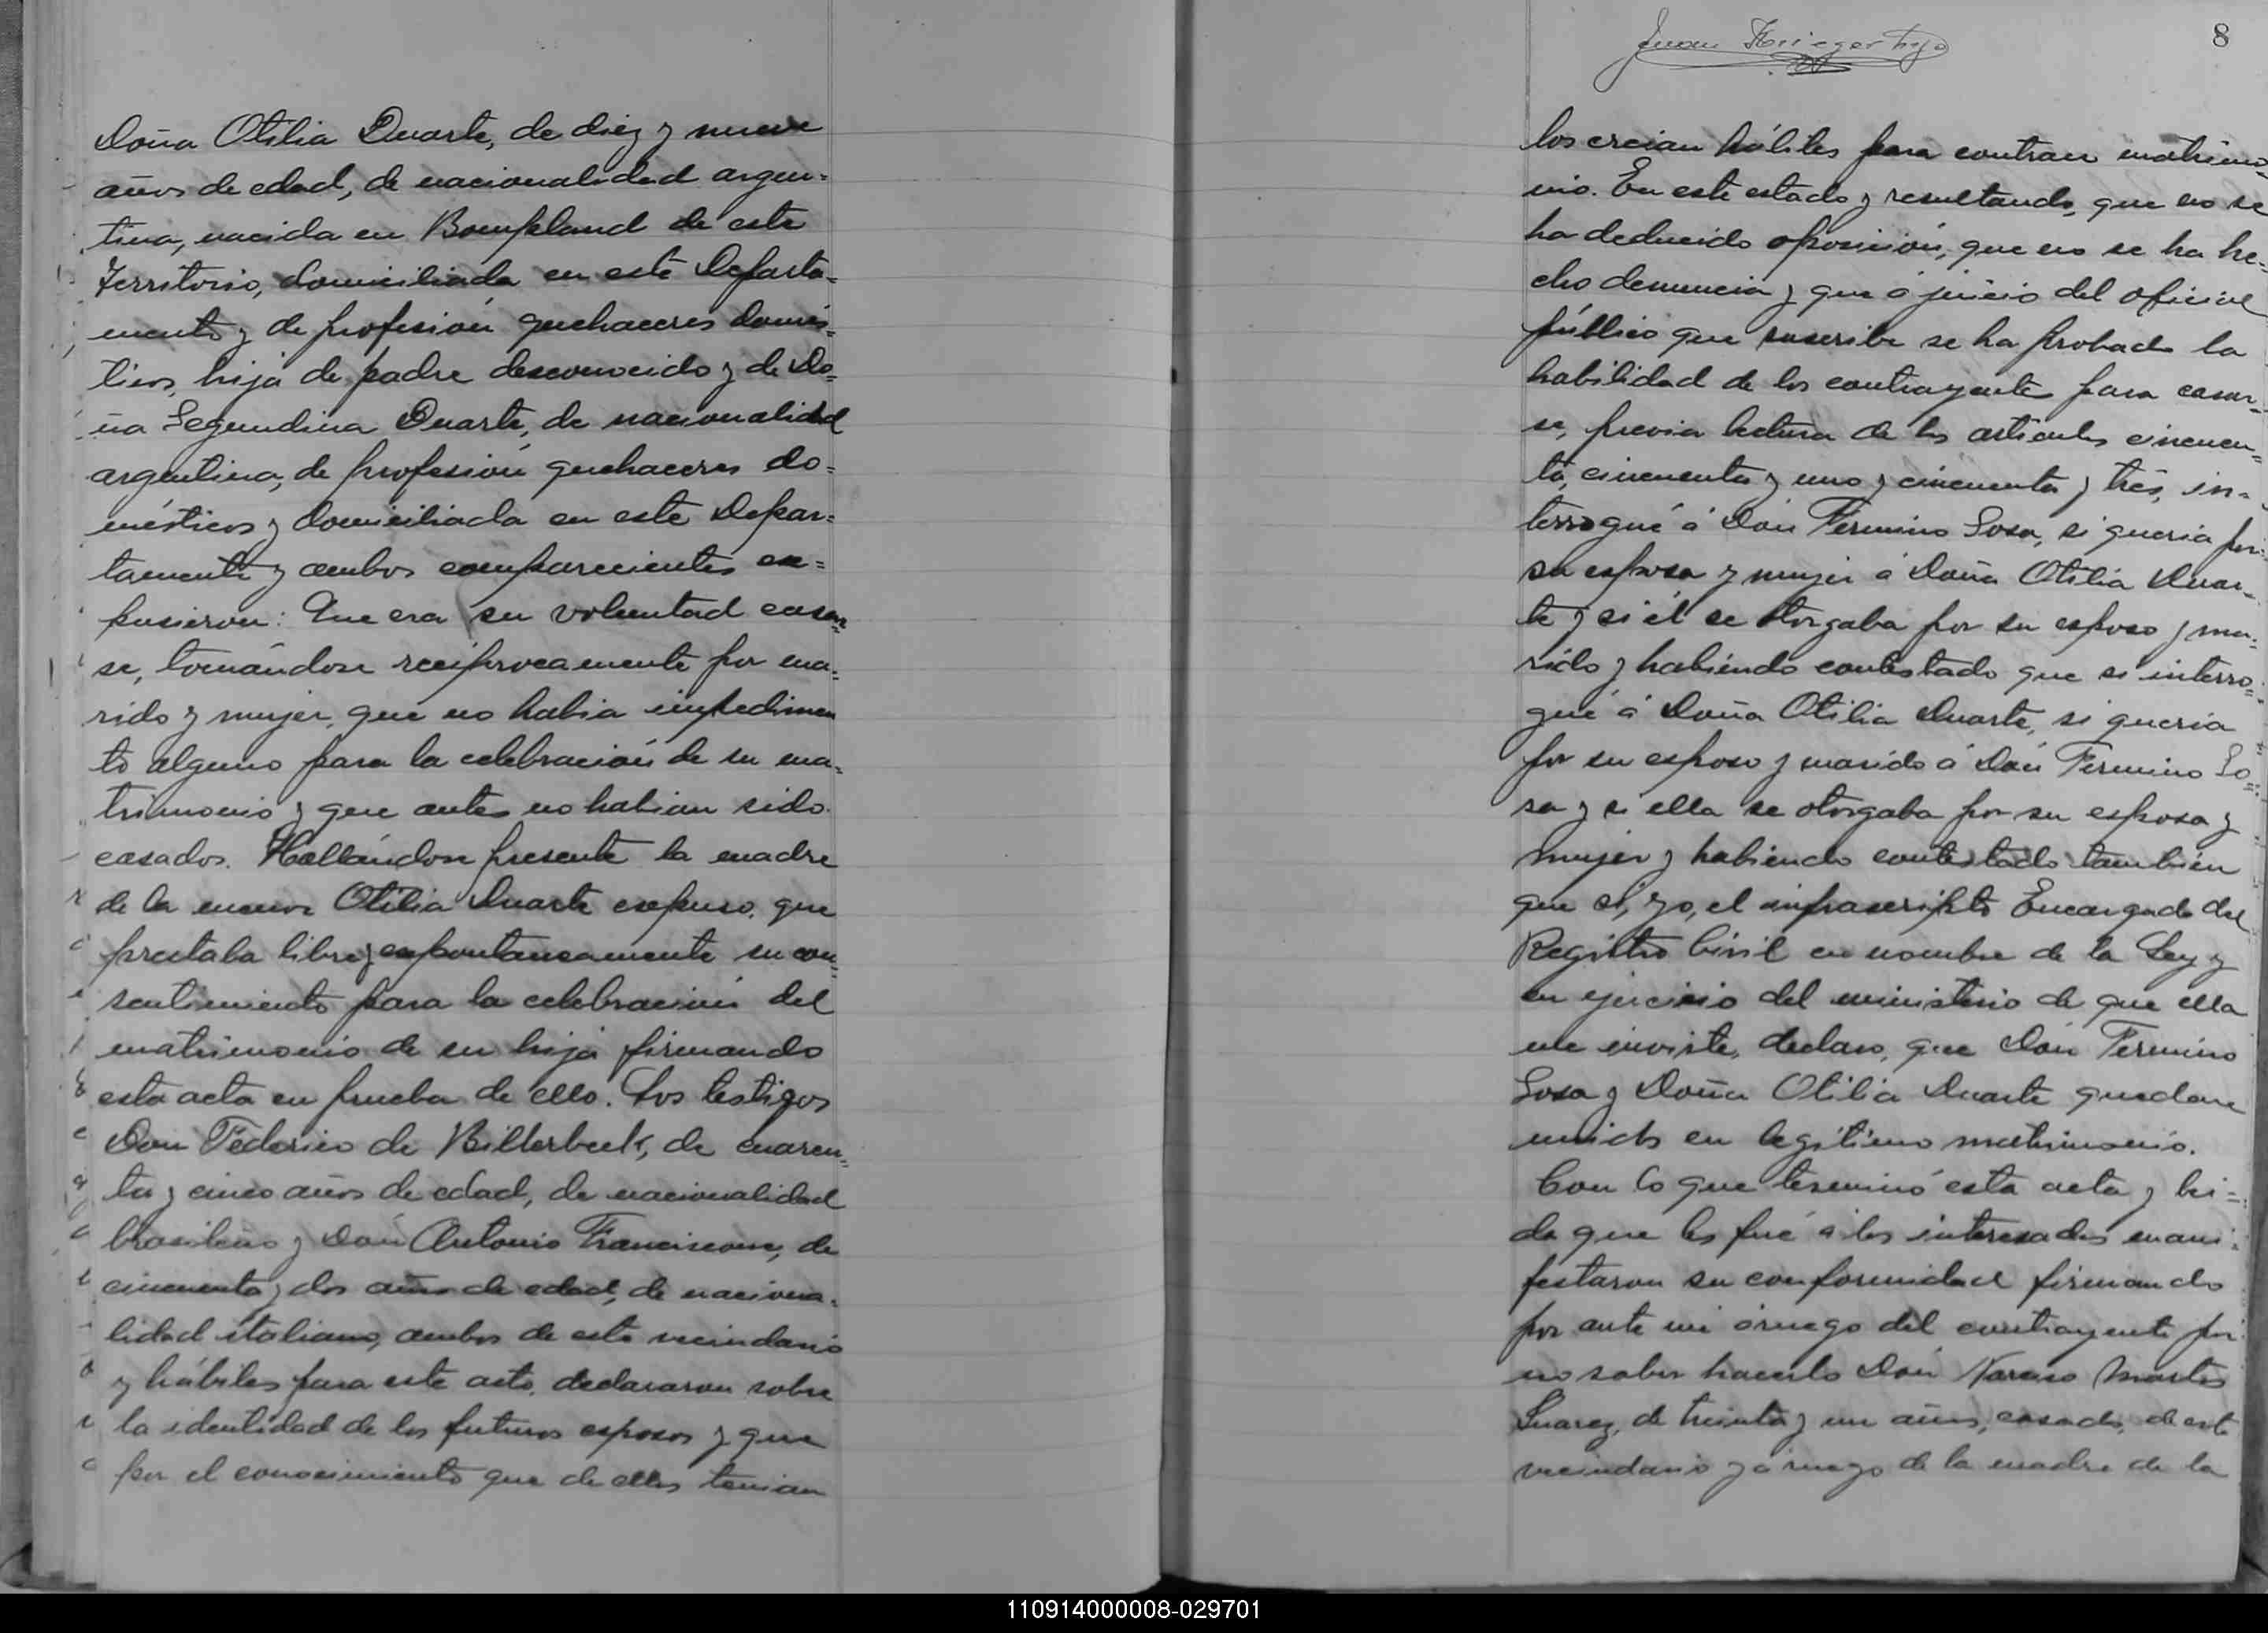 Doña Otilia Duarte, de diez y nueve
años de edad, de nacionalidad argen=
tina, nacida en Bompland de este
Territorio, domiciliada en este Departa=
mento y de profesión quehaceres domés=
ticos, hija de padre desconocido y de Do=
ña Segundina Duarte, de nacionalidad
argentina, de profesión quehaceres do=
mésticos y domiciliada en este Depar=
tamento y ambos comparecientes ex=
pusieron: Que era su voluntad casar=
se, tomándose recíprocamente por ma=
rido y mujer, que no habia impedimen
to alguno para la celebración de su ma=
trimonio y que antes no habian sido
casados. Hallándose presente la madre
de la menor Otilia Duarte expuso, que
prestaba libre y espontaneamente su con=
sentimiento para la celebración del
matrimonio de su hija firmando
esta acta en prueba de ello. Los testigos
Don Federico de Billerbeck, de cuaren=
ta y cinco años de edad, de nacionalidad
brasilero y Don Antonio Franciscone, de
cincuenta y dos años de edad, de naciona=
lidad italiano, ambos de este vecindario
y hábiles para este acto, declararon sobre
la identidad de los futuros esposos y que
por el conocimiento que de ellos tenian
Juan Krieger hijo
8
los creian hábiles para contraer matrimo=
nio. En este estado y resultando, que no se
ha deducido oposición, que no se ha he=
cho denuncia y que á juicio del oficial
público que suscribe se ha probado la
habilidad de los contrayentes para casar=
se, previa lectura de los artículos cincuen=
ta, cincuenta y uno y cincuenta y tres, in=
terrogué á Don Fermino Sosa, si queria por
su esposa y mujer á Doña Otilia Duar=
te y si él se otorgaba por su esposo y ma=
rido y habiendo contestado que si interro=
gué á Doña Otilia Duarte, si queria
por su esposo y marido á Don Fermino So=
sa y si ella se otorgaba por su esposa y
mujer y habiendo contestado tambien
que si, yo, el infrascripto Encargado del
Registro Civil en nombre de la Ley y
en ejercicio del ministerio de que ella
me inviste, declaro, que Don Fermino
Sosa y Doña Otilia Duarte quedan
unidos en legítimo matrimonio.
Con lo que terminó esta acta y lei=
da que les fué á los interesados mani=
festaron su conformidad firmando
por ante mi á ruego del contrayente por
no saber hacerlo Don Narciso Martes
Suarez, de treinta y un años, casado, de este
vecindario y á ruego de la madre de la
110914000008-029701